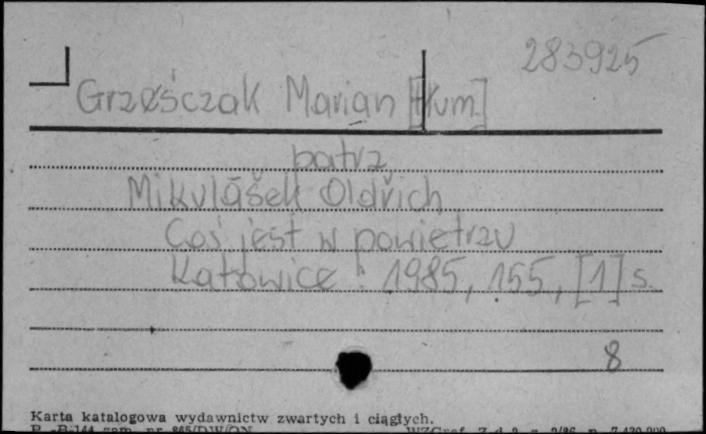 283925
Grześczak Marian [tłum]
patrz
Mikulášek Oldřich
Coś jest w powietrzu
Katowice : 1985, 155, [1] s.
8
Karta katalogowa wydawnictw zwartych i ciągłych.